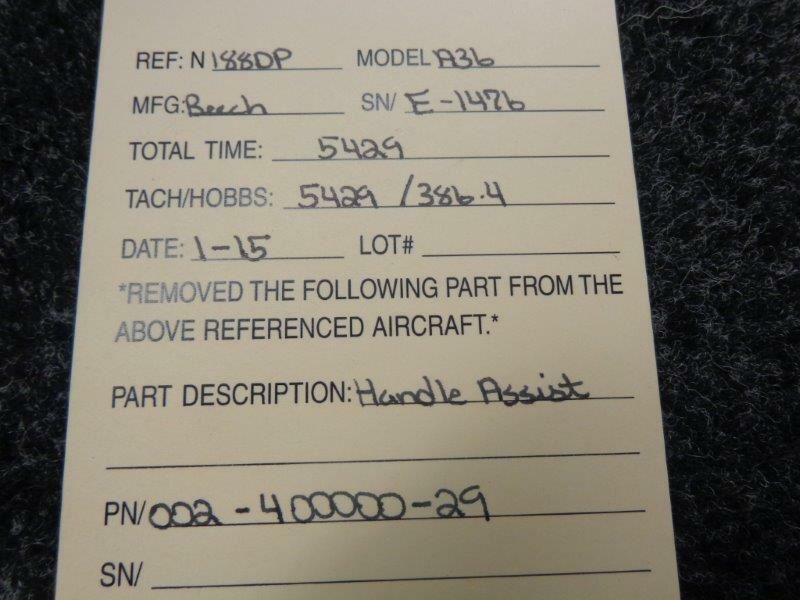 REF: N 188DP MODEL A36
MFG: Beech SN/ E-1476
TOTAL TIME: 5429
TACH/HOBBS: 5429 /386.4
DATE: 1-15 LOT#
*REMOVED THE FOLLOWING PART FROM THE
ABOVE REFERENCED AIRCRAFT.*
PART DESCRIPTION: Handle Assist
PN/ 002-400000-29
SN/